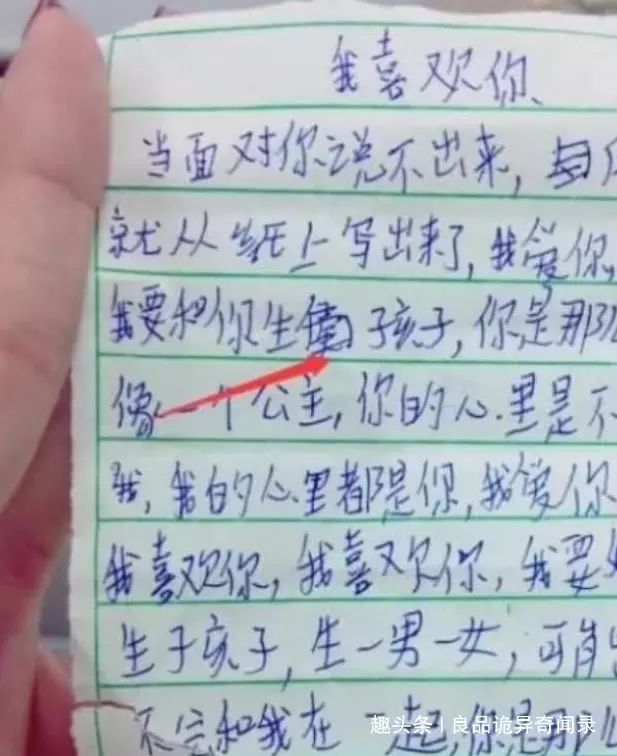 我喜欢你、
当面对你说不出来，每
就从纸上写出来了，我爱你，
我要和你生 子孩子，你是那
像一个公主，你的心里是不
我，我的心里都是你，我爱你
我喜欢你，我喜欢你，我要
生子孩子，生一男一女，可肯
不完和我在一起你是
趣头条 | 良品诡异奇闻录